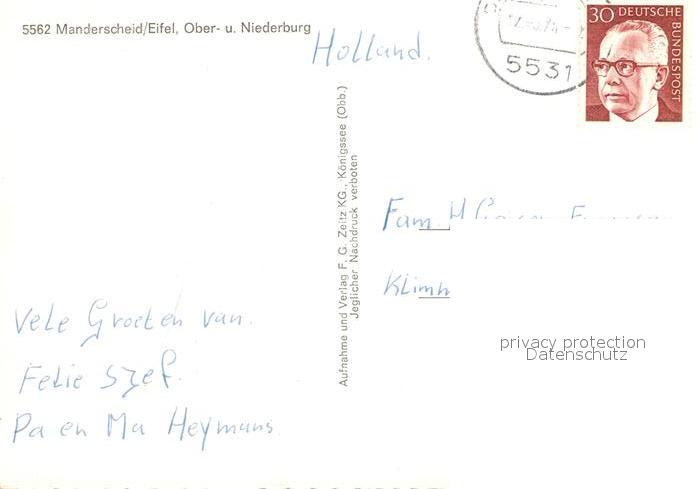 5562 Manderscheid/Eifel, Ober- u. Niederburg
Holland.
5531
30 DEUTSCHE
BUNDESPOST
Aufnahme und Verlag F. G. Zeitz KG., Königssee (Obb.)
Jeglicher Nachdruck verboten
Fam. H
privacy protection
Datenschutz
Vele Groeten van.
Felie Szef.
Pa en Ma Heymans